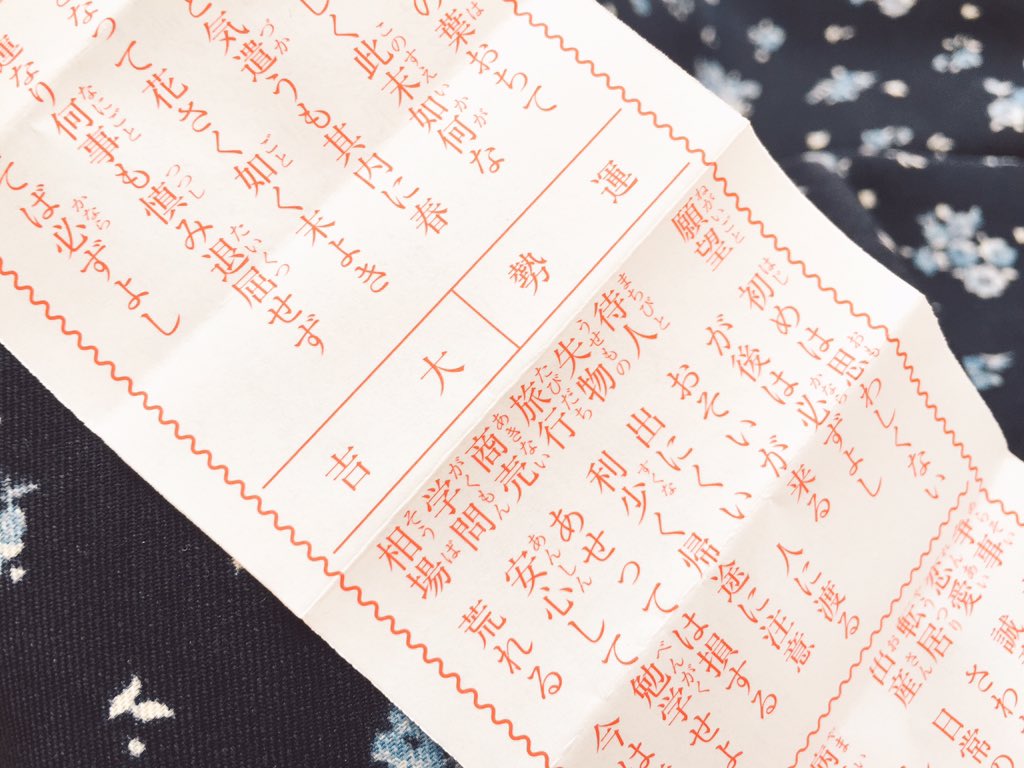 葉おちて
しく此末如何な
と気遣うも其内に春
なって花さく如く末よき
運なり何事も慎み退屈せず
てば必ずよし
運勢
大吉
願望 初めは思わしくない
が後は必ずよし
待人 おそいが来る
失物 出にくい 人に渡る
旅行 利少く帰途に注意
商売 あせっては損する
学問 安心して勉学せよ
相場 荒れる 今は
争事
恋愛 誠
転居 さわ
出産 日常の